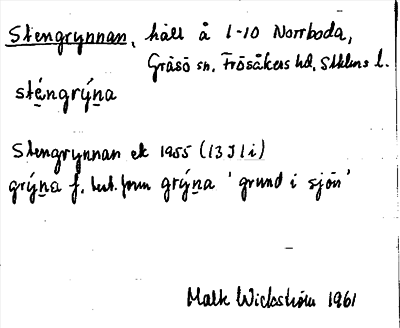 Stengrynnan, häll å 1-10 Norrboda,
Gräsö sn, Frösåkers hd, Sthlms l.
sténgrýna
Stengrynnan ek 1955 (13 J 1 i)
grýna f. best. form grýna 'grund i sjön'
Malk Wickström 1961